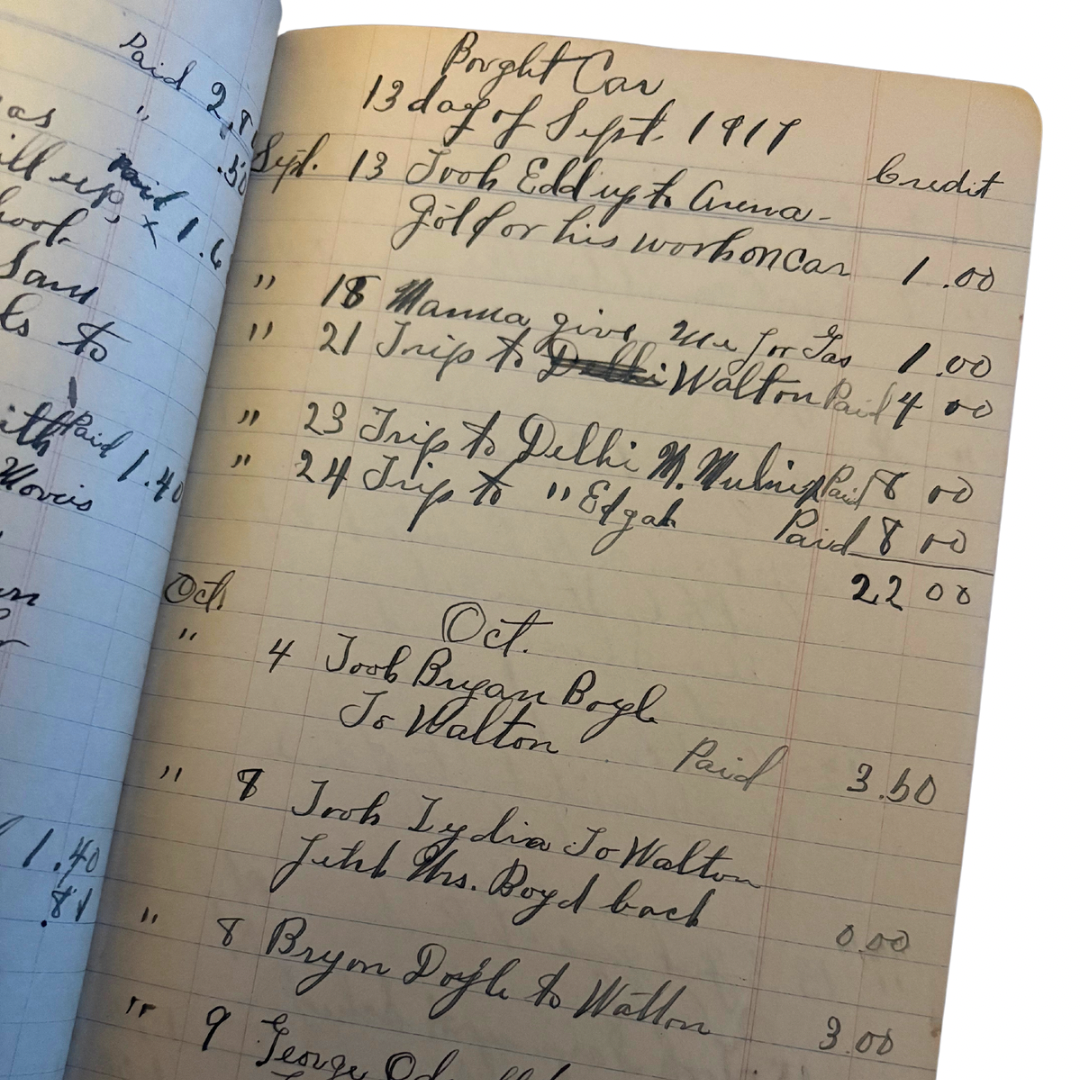 Paid 2.8
" .50
as
ill up, Paid 1.6
x
hool
Sam
ls to
ith Paid 1.40
Morris
1.40
.81
Boght Car
13 day of Sept. 1917
Credit
Sept. 13 Took Edd up to Arena-
gol for his work on Car 1.00
" 18 Mamma give me for Gas 1.00
" 21 Trip to Delhi Walton Paid 4 00
" 23 Trip to Delhi M. Paid 8 00
" 24 Trip to " Edgah Paid 8 00
22 00
Oct.
Oct.
" 4 Took Bryan Bogle
To Walton Paid 3.50
" 8 Took Lydia To Walton
Fetch Mrs. Boyd back 0.00
" 8 Bryon Dogle to Walton 3.00
" 9 George